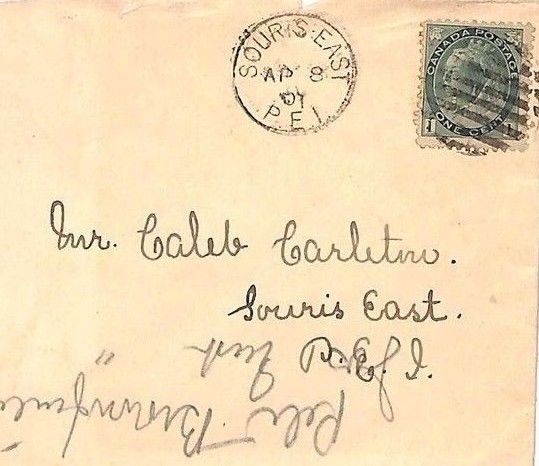 SOURIS EAST
AP 8
01
P.E.I.
CANADA POSTAGE
1 ONE CENT 1
Mr. Caleb Carleton.
Souris East.
P. E. I.